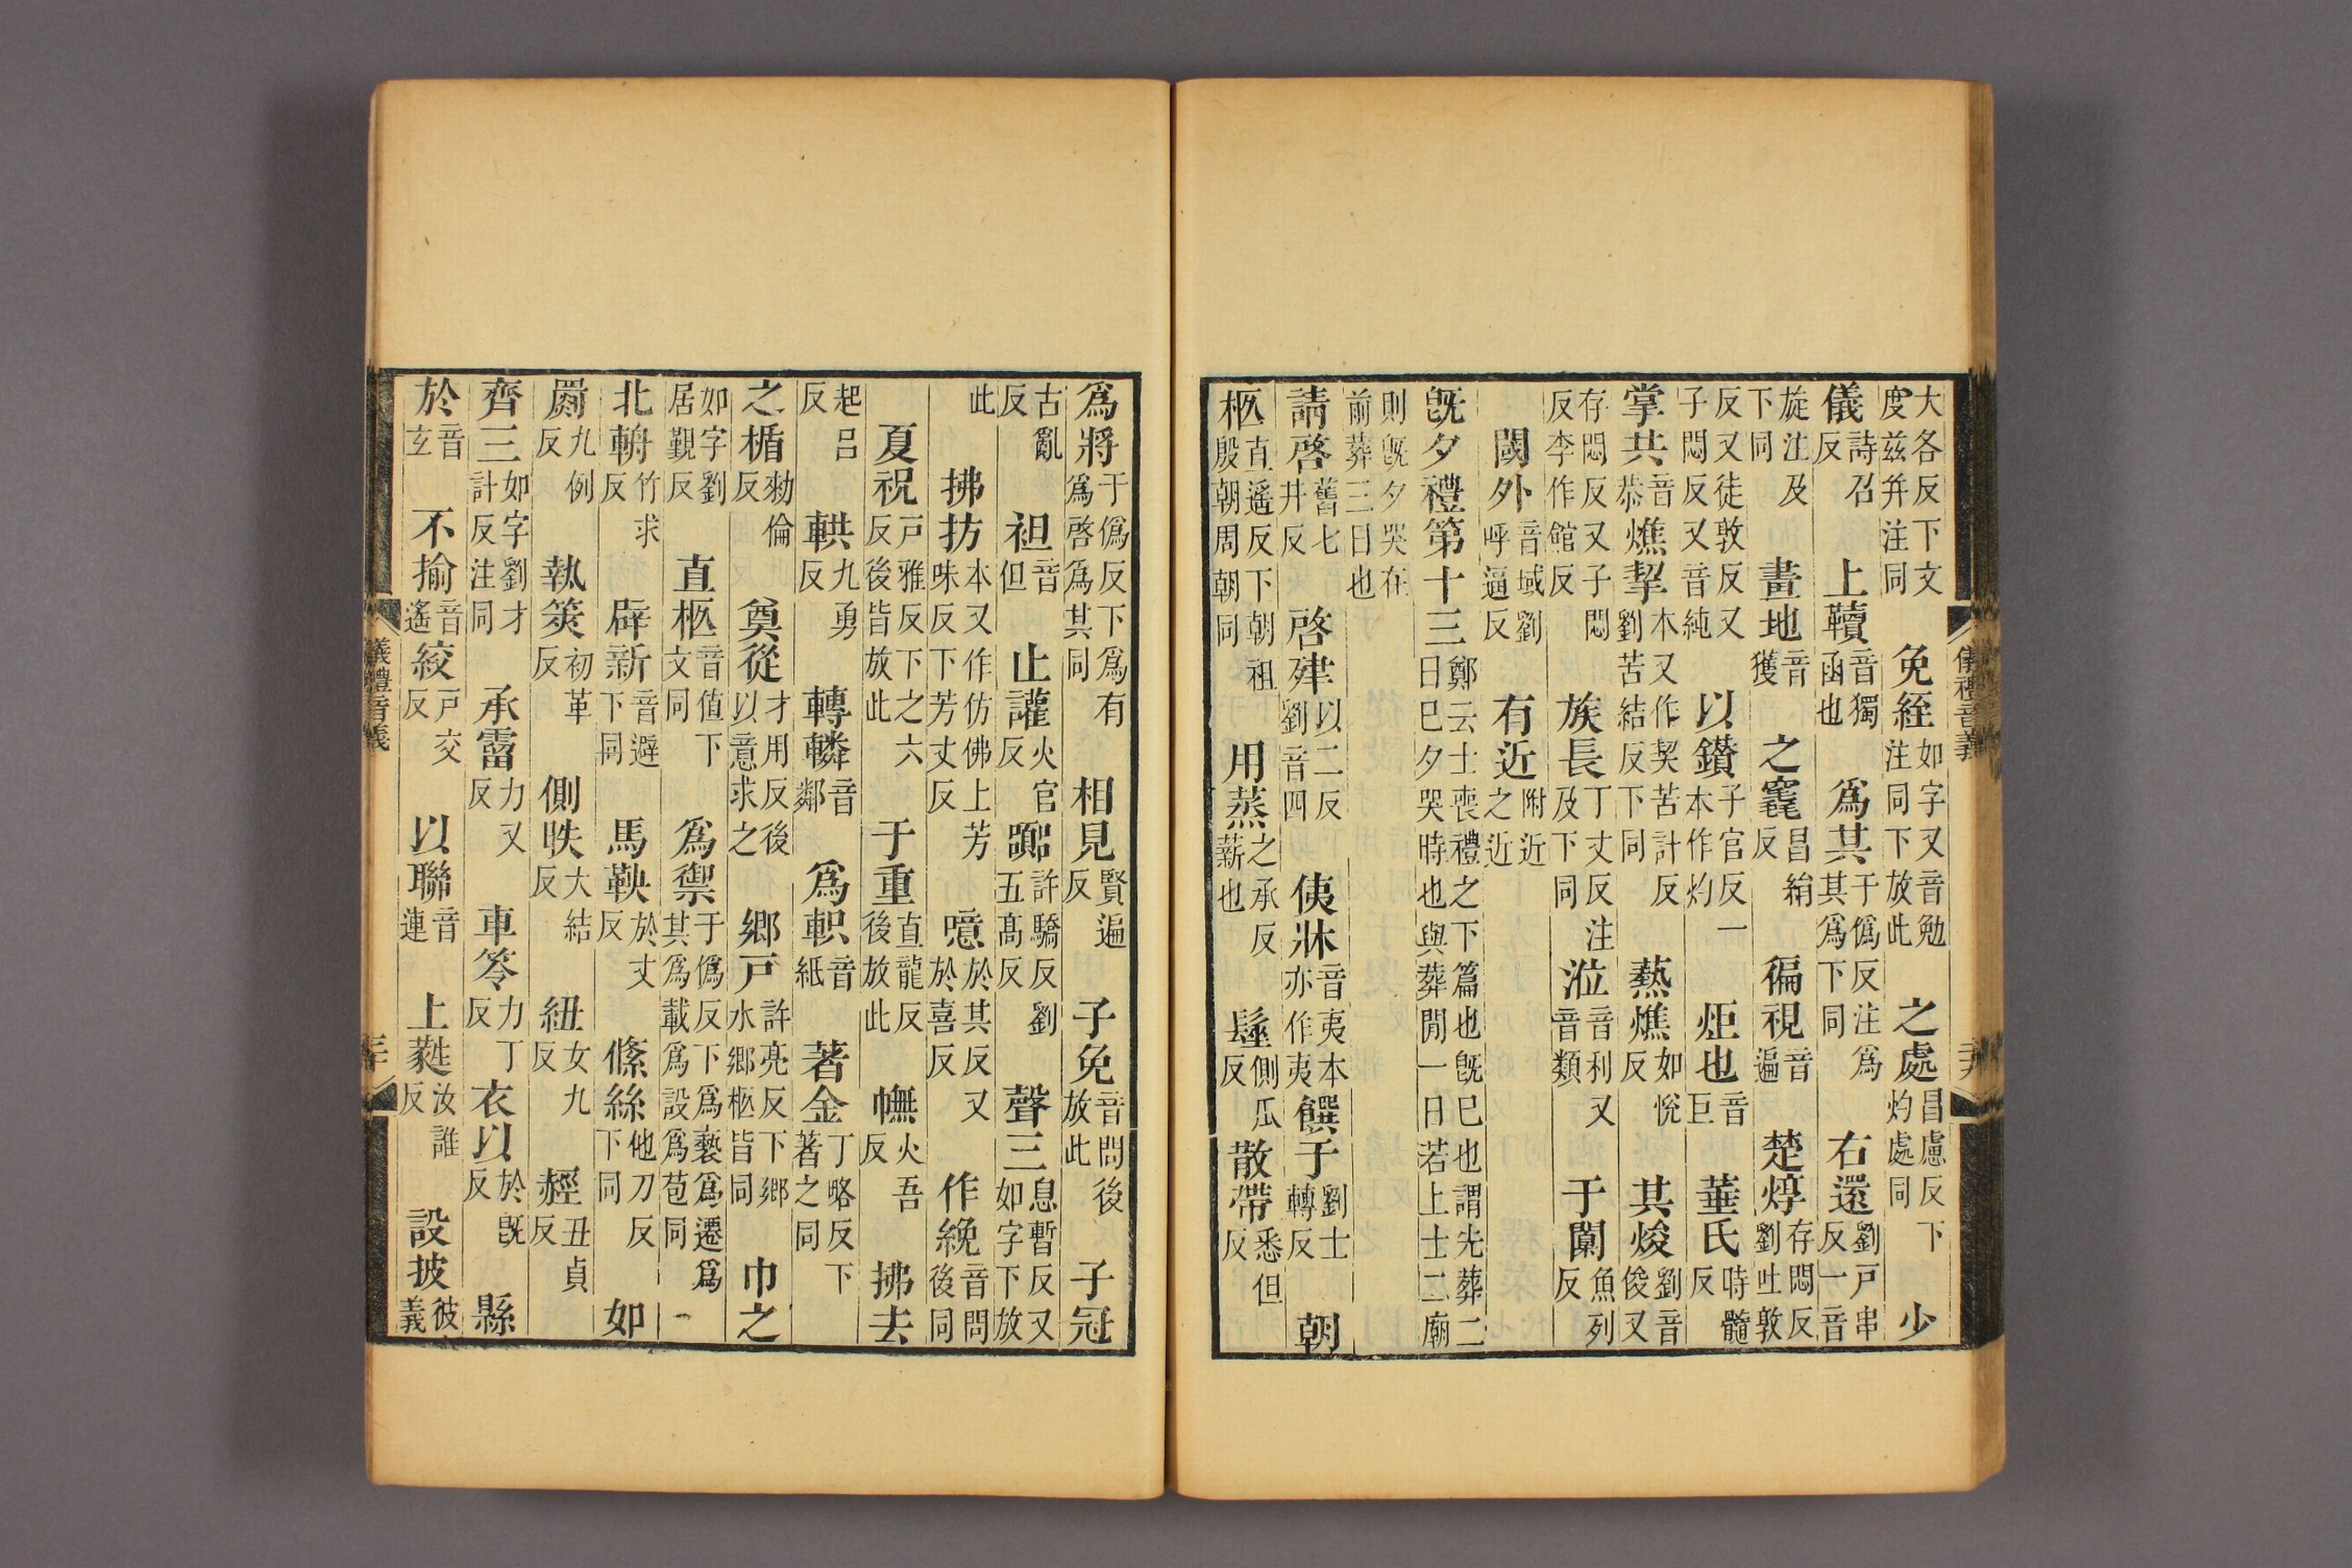 儀禮音義
大各反下文度茲并注同 免絰如字又音勉注同下放此 之處昌慮反下灼處同 少
儀詩召反 上韇音獨函也 爲其于僞反注爲其爲下同 右還劉戶串反一音
旋注及下同 畫地音獲 之竁昌絹反 徧視音遍 楚焞存悶反劉吐敦
反又徒敦反又子悶反又音純 以鑽子官反一本作灼 炬也音巨 華氏時髓反
掌共音恭 燋挈本又作契苦計反劉苦結反下同 爇燋如悅反 其焌劉音俊又
存悶反又子悶反李作館反 族長丁丈反注及下同 涖音利又音類 于闑魚列反
閾外音域劉呼逼反 有近附近之近
旣夕禮第十三鄭云士喪禮之下篇也旣巳也謂先葬二日巳夕哭時也與葬閒一日若上士二廟
則旣夕哭在前葬三日也
請啓舊七井反 啓殔以二反劉音四 侇牀音夷本亦作夷 饌于劉士轉反 朝
柩直遙反下朝祖殷朝周朝同 用蒸之承反薪也 髽側瓜反 散帶悉但反
爲將于僞反下爲有爲啓爲其同 相見賢遍反 子免音問後放此 子冠
古亂反 袒音但 止讙火官反 嚻許驕反劉五高反 聲三息暫反又如字下放
此 拂㧍本又作仿佛上芳味反下芳丈反 噫於其反又於喜反 作絻音問後同
夏祝戶雅反下之六反後皆放此 于重直龍反後放此 幠火吾反 拂去
起呂反 輁九勇反 轉轔音鄰 爲軹音紙 著金丁略反下著之同
之楯勑倫反 奠從才用反後以意求之 鄉戶許亮反下鄉水鄉柩皆同 巾之
如字劉居覲反 直柩音値下文同 爲禦于僞反下爲褻爲遷爲其爲載爲設爲苞同 一
北輈竹求反 辟新音避下同 馬鞅於丈反 絛絲他刀反下同 如
罽九例反 執筴初革反 側昳大結反 紐女九反 赬丑貞反
齊三如字劉才計反注同 承霤力又反 車笭力丁反 衣以於旣反 縣
於音玄 不揄音遙 絞戶交反 以聯音連 上蕤汝誰反 設披彼義
儀禮音義 三十